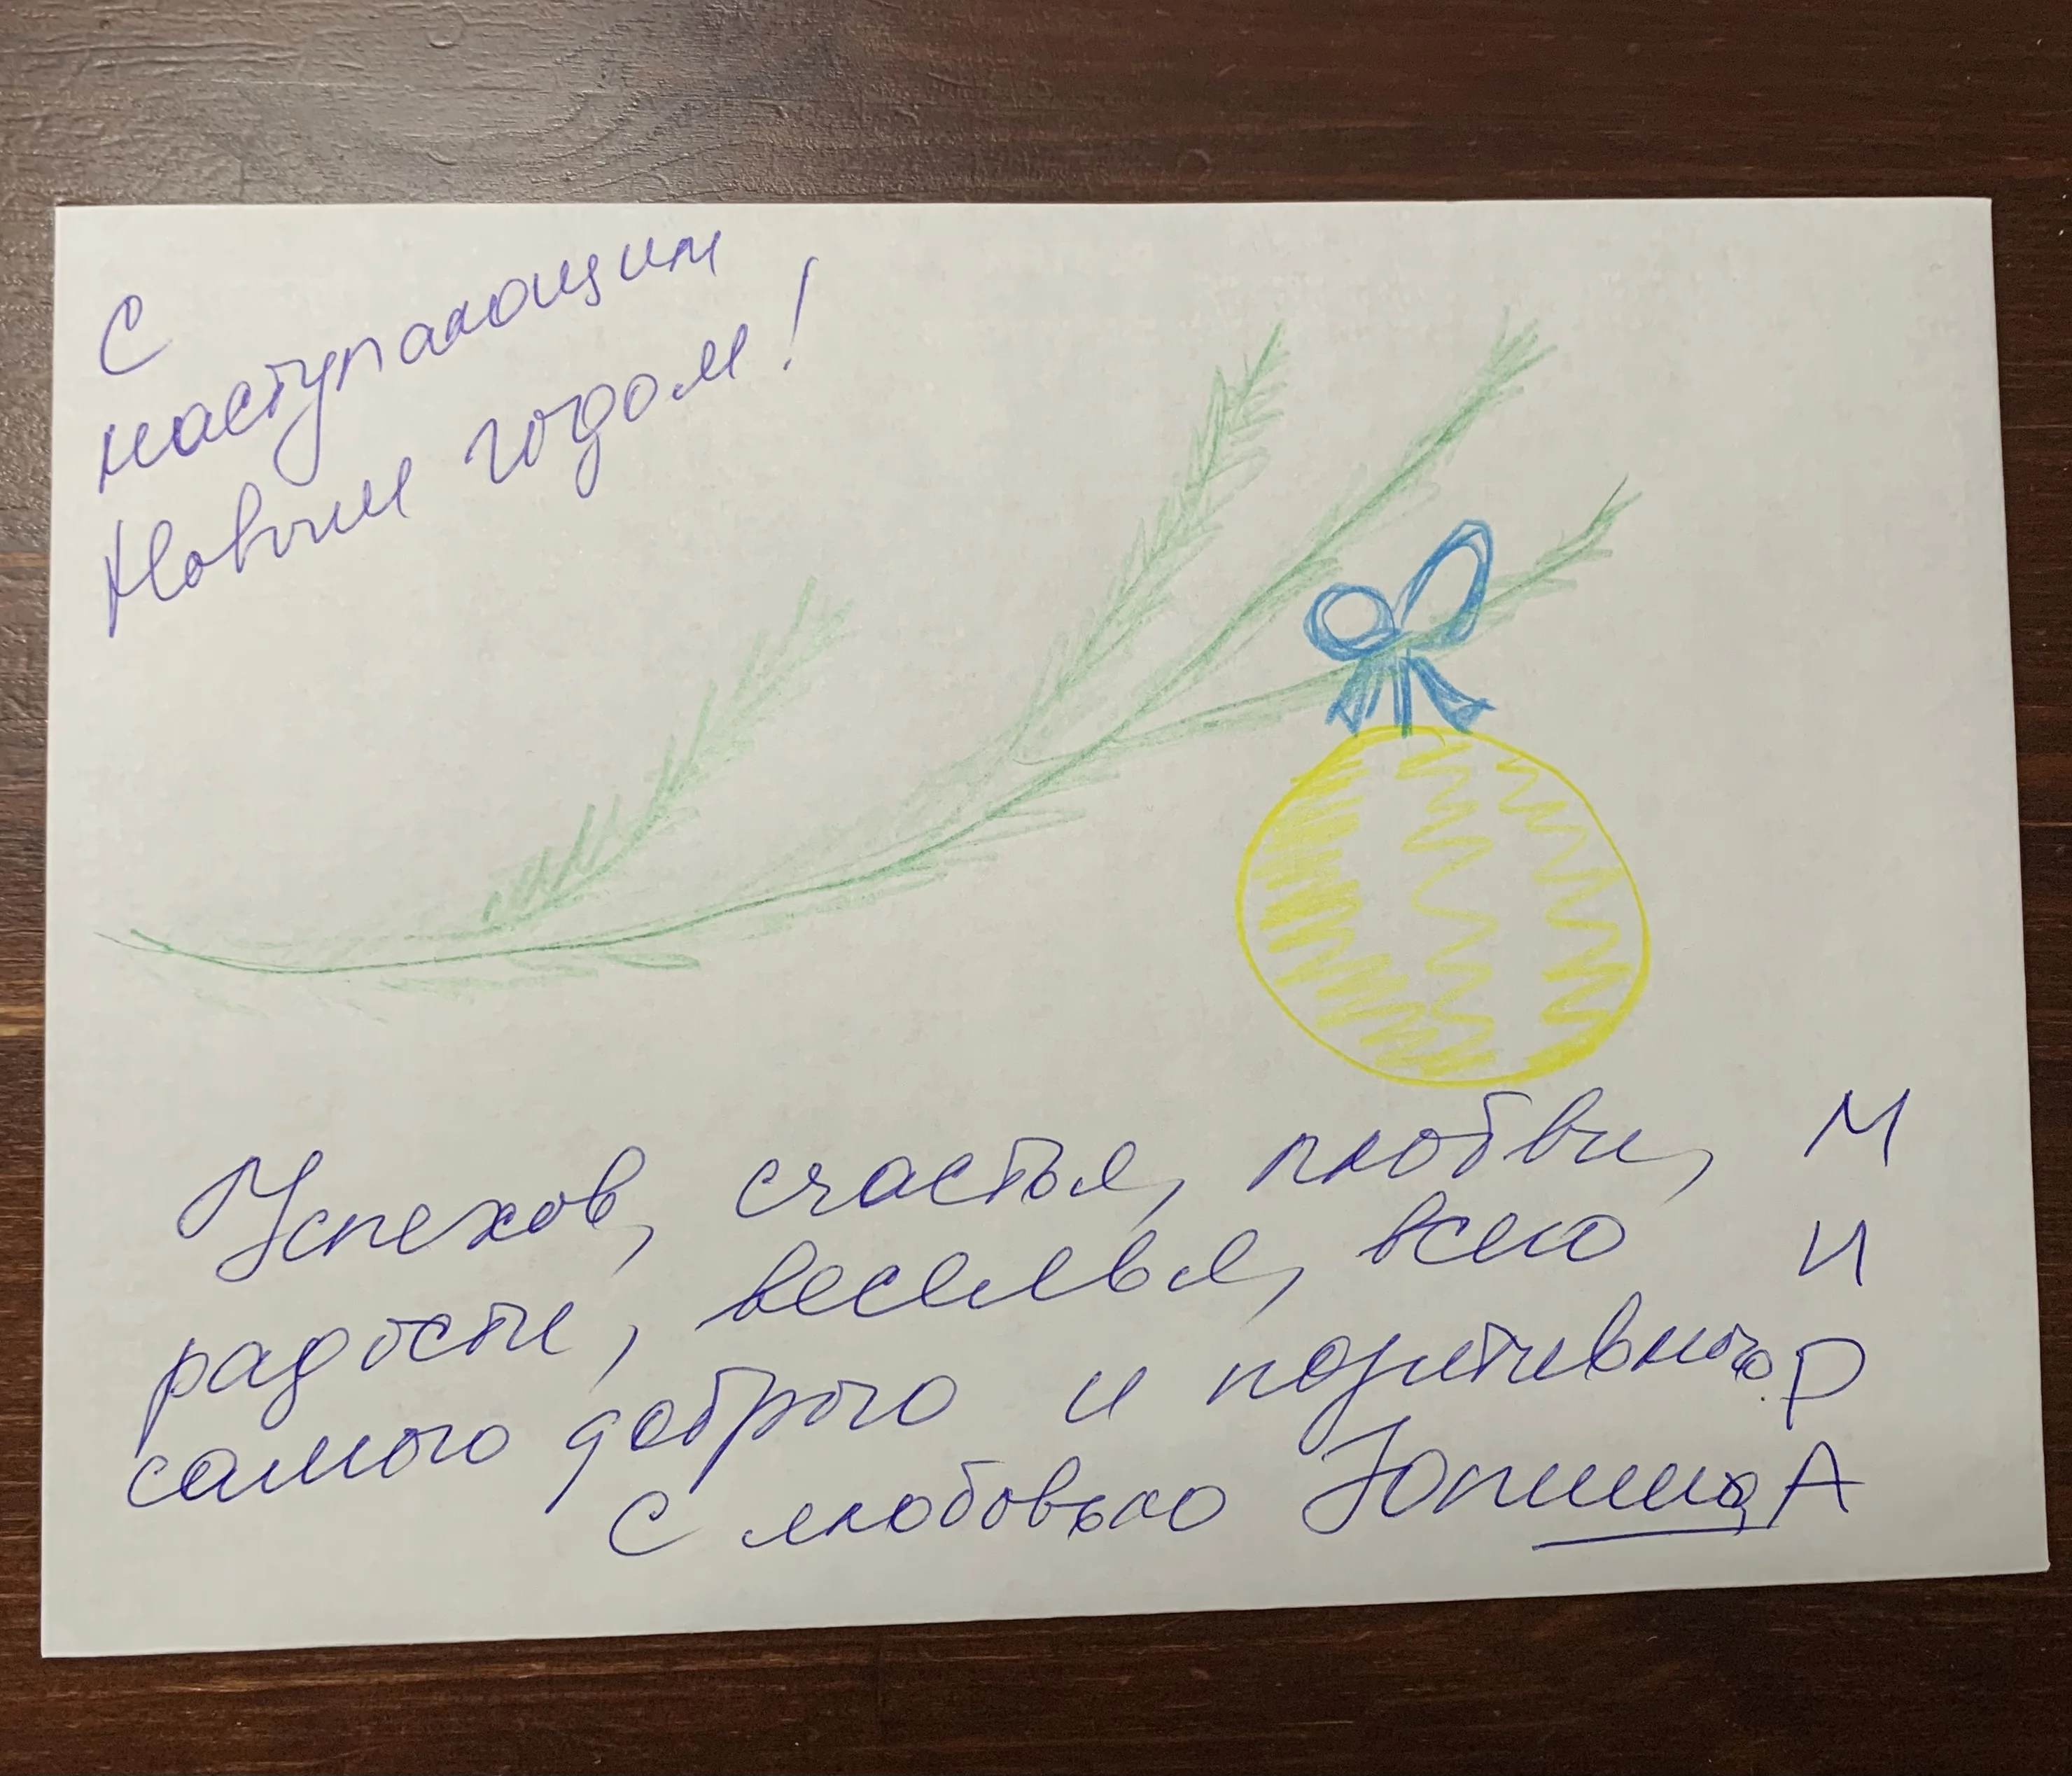 С
наступающим
Новым годом!
Успехов, счастья, любви,
радости, веселья, всего
самого доброго и позитивного
С любовью
МИРА